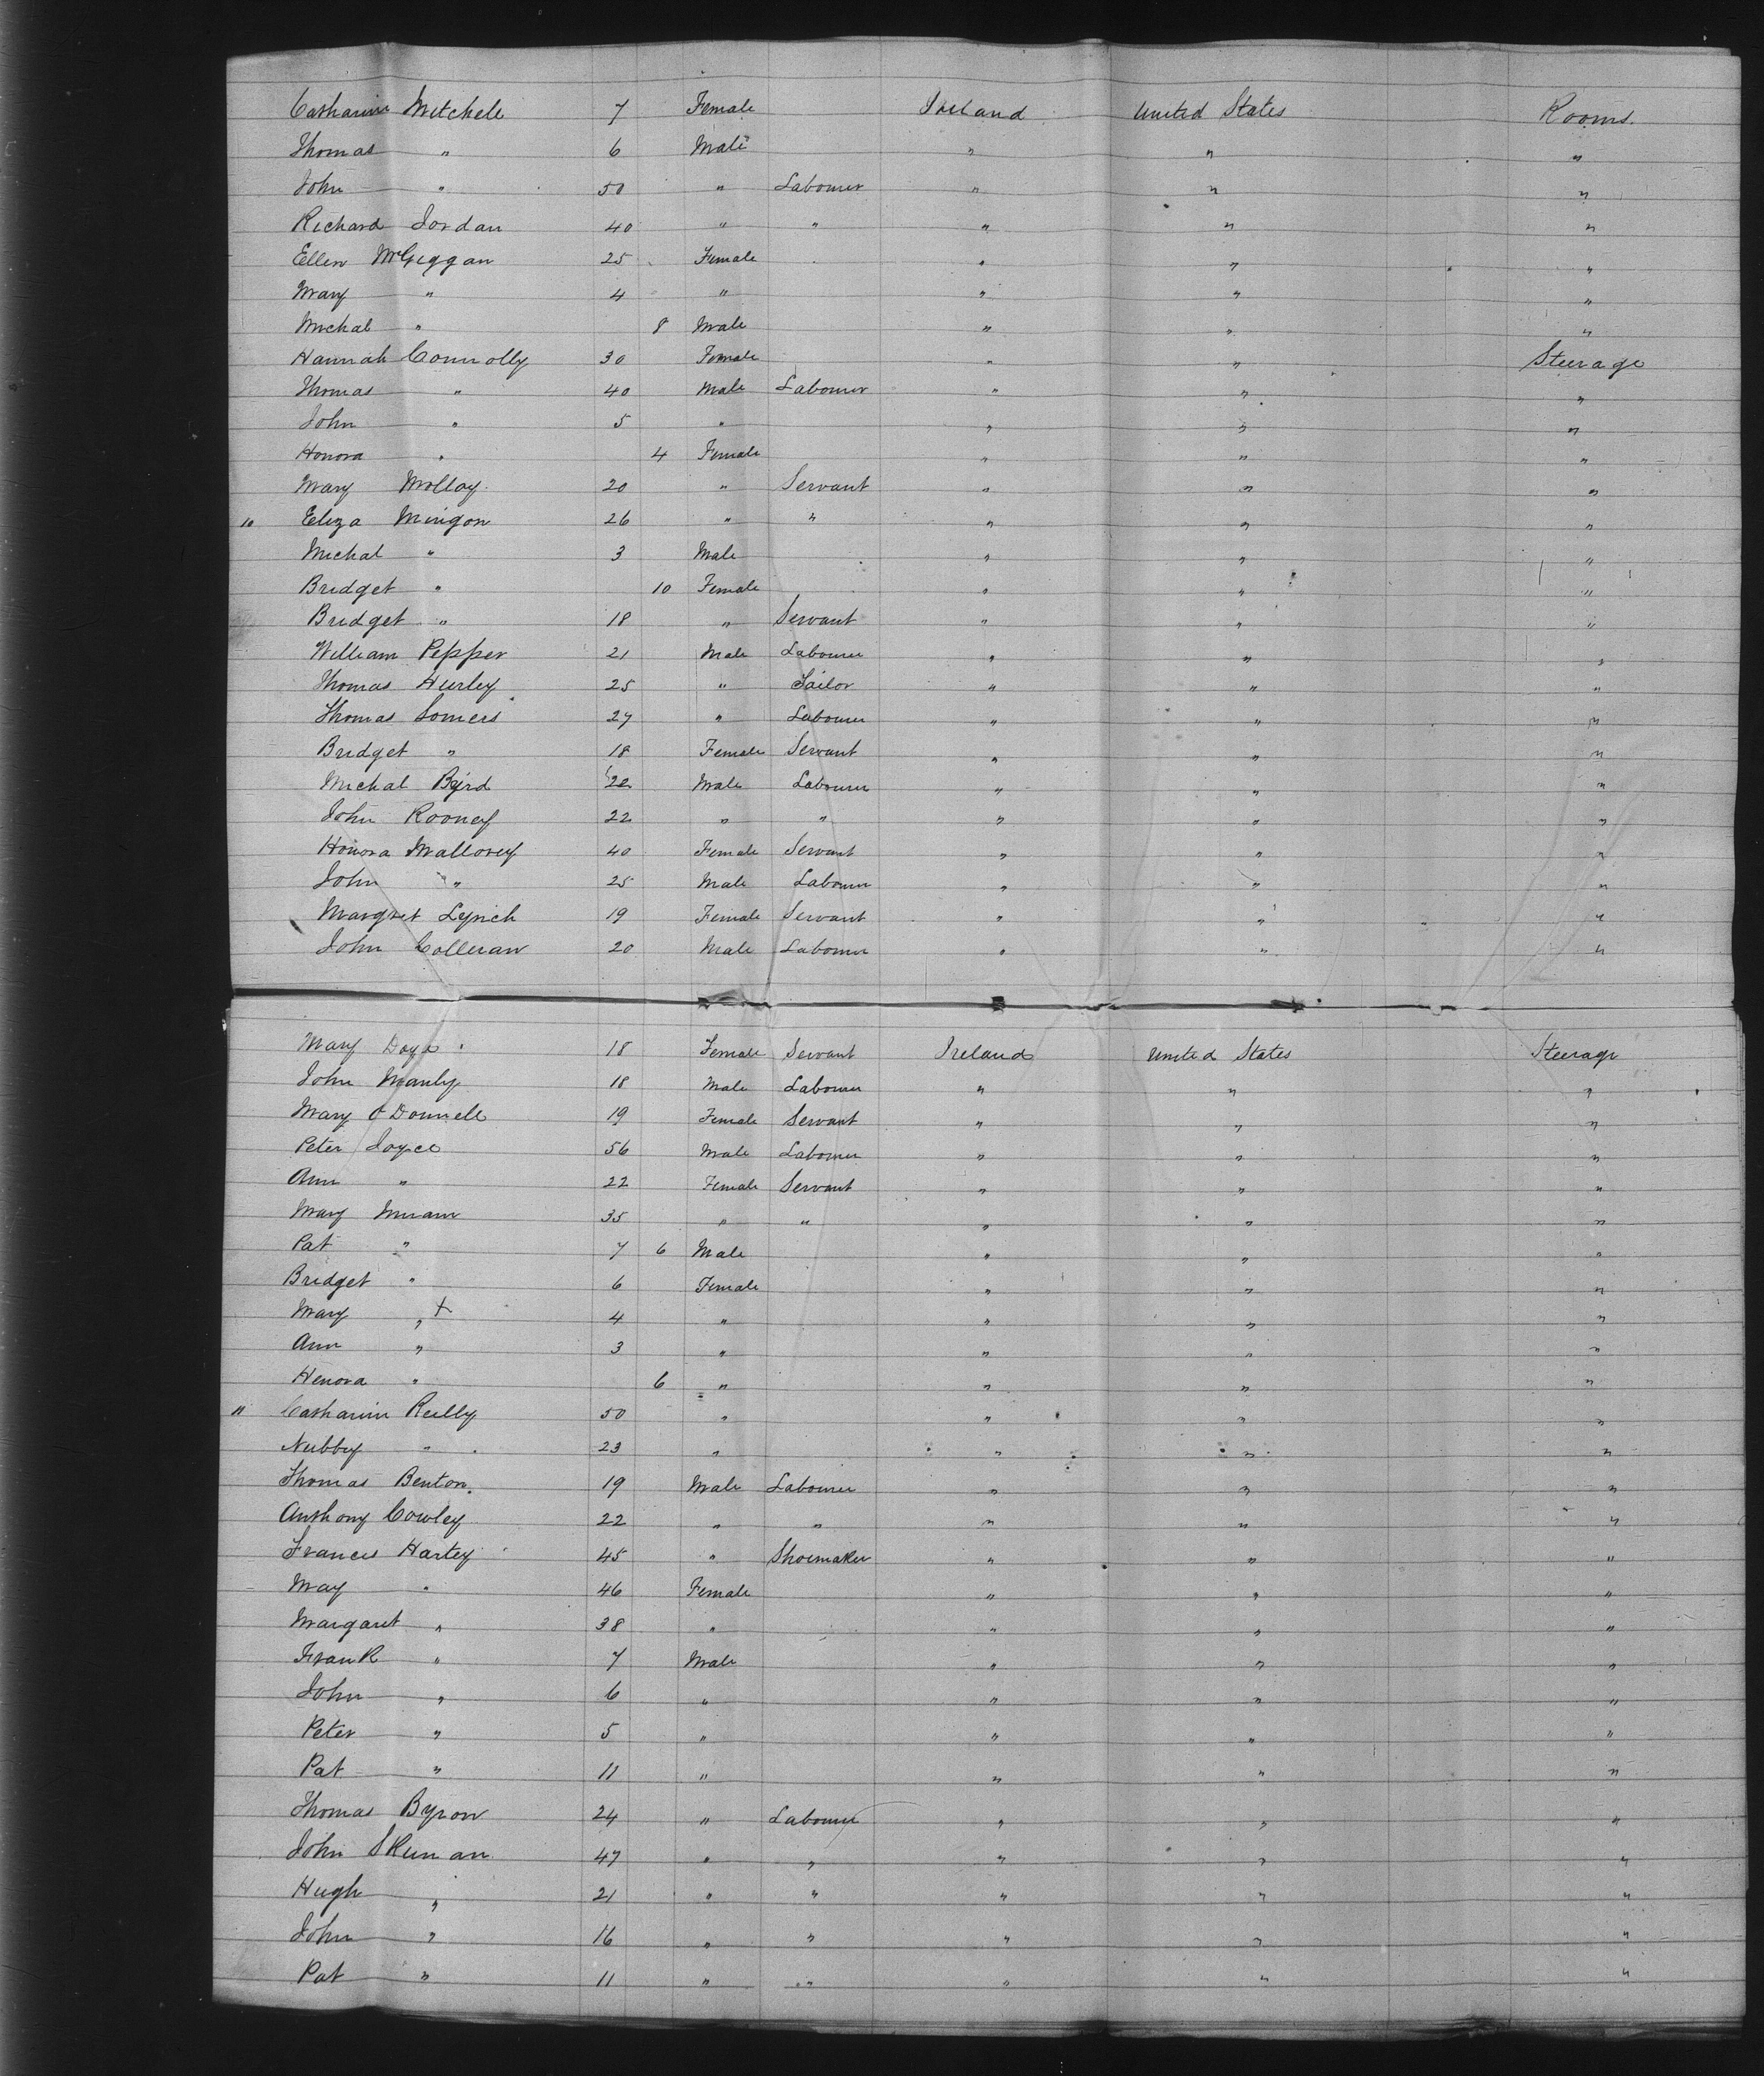 Catharine Mitchell 7 Female Ireland United States Rooms.
Thomas " 6 Male " " "
John " 50 " Labourer " " "
Richard Jordan 40 " " " " "
Ellen McGiggan 25 Female " " "
Mary " 4 " " " "
Michal " 8 Male " " "
Hannah Connolly 30 Female " " Steerage
Thomas " 40 Male Labourer " " "
John " 5 " " " "
Honora " 4 Female " " "
Mary Molloy 20 " Servant " " "
10 Eliza Mingon 26 " " " " "
Michal " 3 Male " " "
Bridget " 10 Female " " "
Bridget " 18 " Servant " " "
William Pepper 21 Male Labourer " " "
Thomas Hurley 25 " Tailor " " "
Thomas Somers 27 " Labourer " " "
Bridget " 18 Female Servant " " "
Michal Bajrd 22 Male Labourer " " "
John Rooney 22 " " " " "
Honora Mallorey 40 Female Servant " " "
John " 25 Male Labourer " " "
Margret Lynch 19 Female Servant " " "
John Colleran 20 Male Labourer " " "
Mary Doyle 18 Female Servant Ireland United States Steerage
John Manly 18 Male Labourer " " "
Mary O Donnell 19 Female Servant " " "
Peter Joyce 56 Male Labourer " " "
Ann " 22 Female Servant " " "
Mary Muram 35 " " " " "
Pat " 7 6 Male " " "
Bridget " 6 Female " " "
Mary " + 4 " " " "
Ann " 3 " " " "
Henora " 6 " " " "
11 Catharine Reilly 50 " " " "
Nubby " 23 " " " "
Thomas Benton. 19 Male Labourer " " "
Anthony Cowley 22 " " " " "
Frances Hartey 45 " Shoemaker " " "
May " 46 Female " " "
Margaret " 38 " " " "
Frank " 7 Male " " "
John " 6 " " " "
Peter " 5 " " " "
Pat " 11 " " " "
Thomas Byron 24 " Labourer " " "
John Skunan 47 " " " " "
Hugh " 21 " " " " "
John " 16 " " " " "
Pat " 11 " " " " "